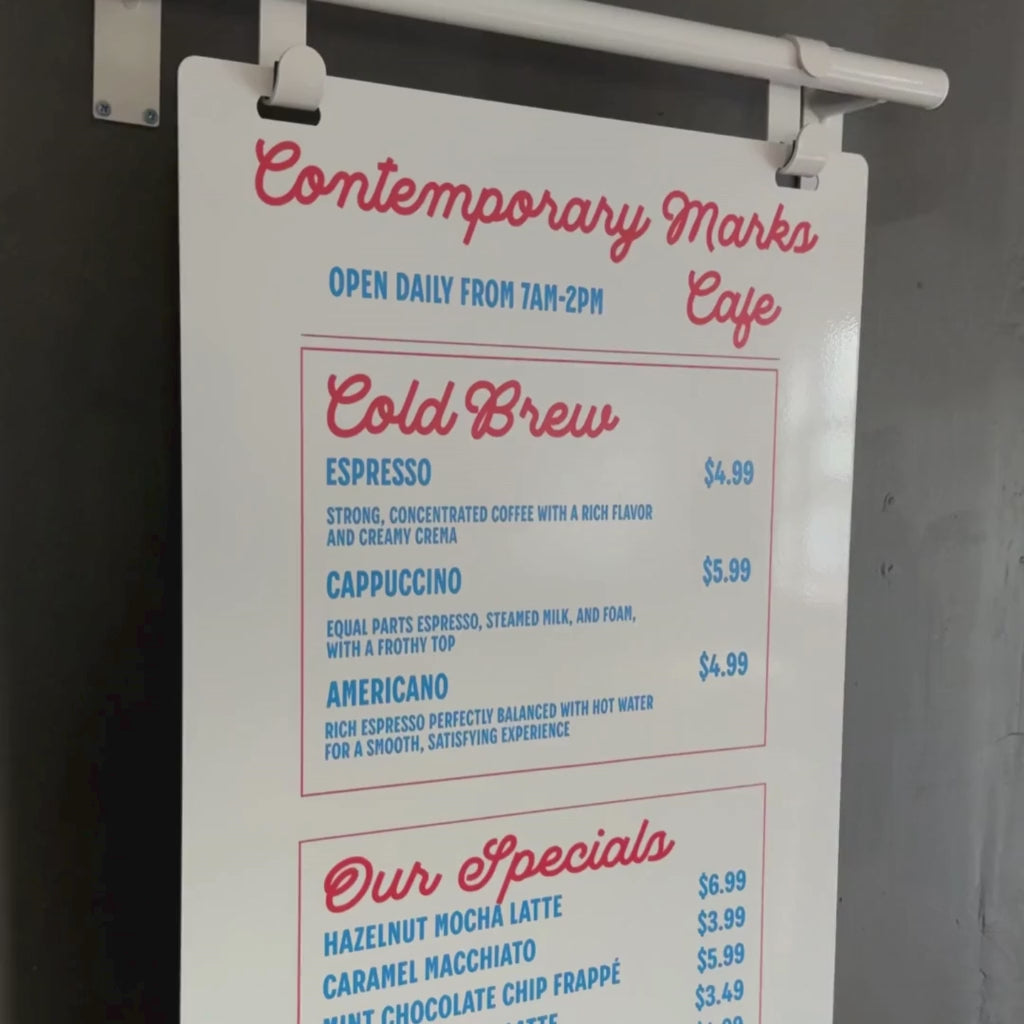 Contemporary Marks
Cafe
OPEN DAILY FROM 7AM-2PM
Cold Brew
ESPRESSO $4.99
STRONG, CONCENTRATED COFFEE WITH A RICH FLAVOR
AND CREAMY CREMA
CAPPUCCINO $5.99
EQUAL PARTS ESPRESSO, STEAMED MILK, AND FOAM,
WITH A FROTHY TOP
AMERICANO $4.99
RICH ESPRESSO PERFECTLY BALANCED WITH HOT WATER
FOR A SMOOTH, SATISFYING EXPERIENCE
Our Specials
HAZELNUT MOCHA LATTE $6.99
CARAMEL MACCHIATO $3.99
MINT CHOCOLATE CHIP FRAPPÉ $5.99
LATTE $3.49